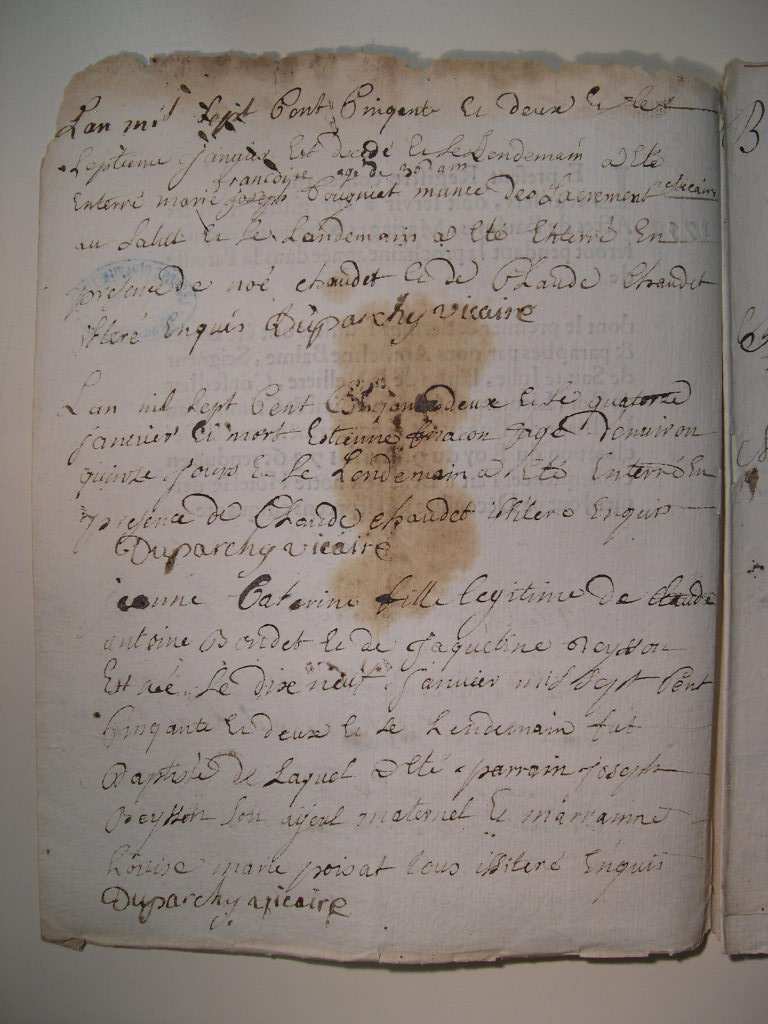 Lan mil Sept Cent Cinqante et deux et le
Septieme janvier Est decedé et le Lendemain a eté
francoise agé de 30 an
Enterré marie joseph Pouguiet munie des Sacrement necessaire
au Salut et le Landemain a eté Enterré En
presence de noé chaudet et de Claude Chaudet
illiteré Enquis Duparchy vicaire
Lan mil Sept Cent Cinqante deux et le quatorze
janvier Est mort Estienne agé denviron
quinze jours et le Lendemain a eté Enterré En
presence de Claude chaudet illitere Enquis
Duparchy vicaire
jeanne Caterine fille legitime de claude
antoine Bondet et de jaqueline Reysson
Est née Le dixneuf janvier mil Sept Cent
Cinqante et deux et le Lendemain fut
Baptisée de Laquel a eté parrain joseph
Reysson Son ayeul maternel et marranne
Louise marie poisat tous illiteré Enquis
Duparchy vicaire